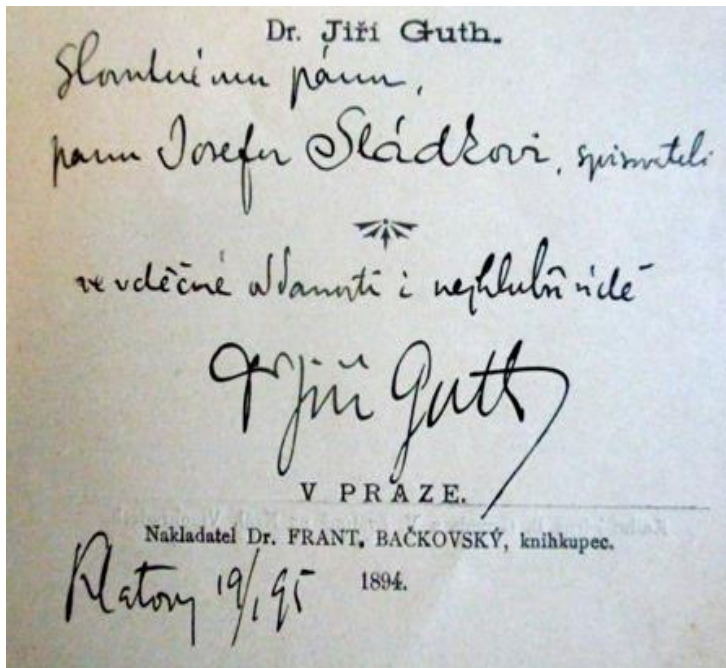 Dr. Jiří Guth.
Slovutnému pánu,
panu Josefu Sládkovi, spisovateli
ve vděčné oddanosti i nejhlubší úctě
Dr Jiří Guth
V PRAZE.
Nakladatel Dr. FRANT. BAČKOVSKÝ, knihkupec.
1894.
Klatovy 19/1 95